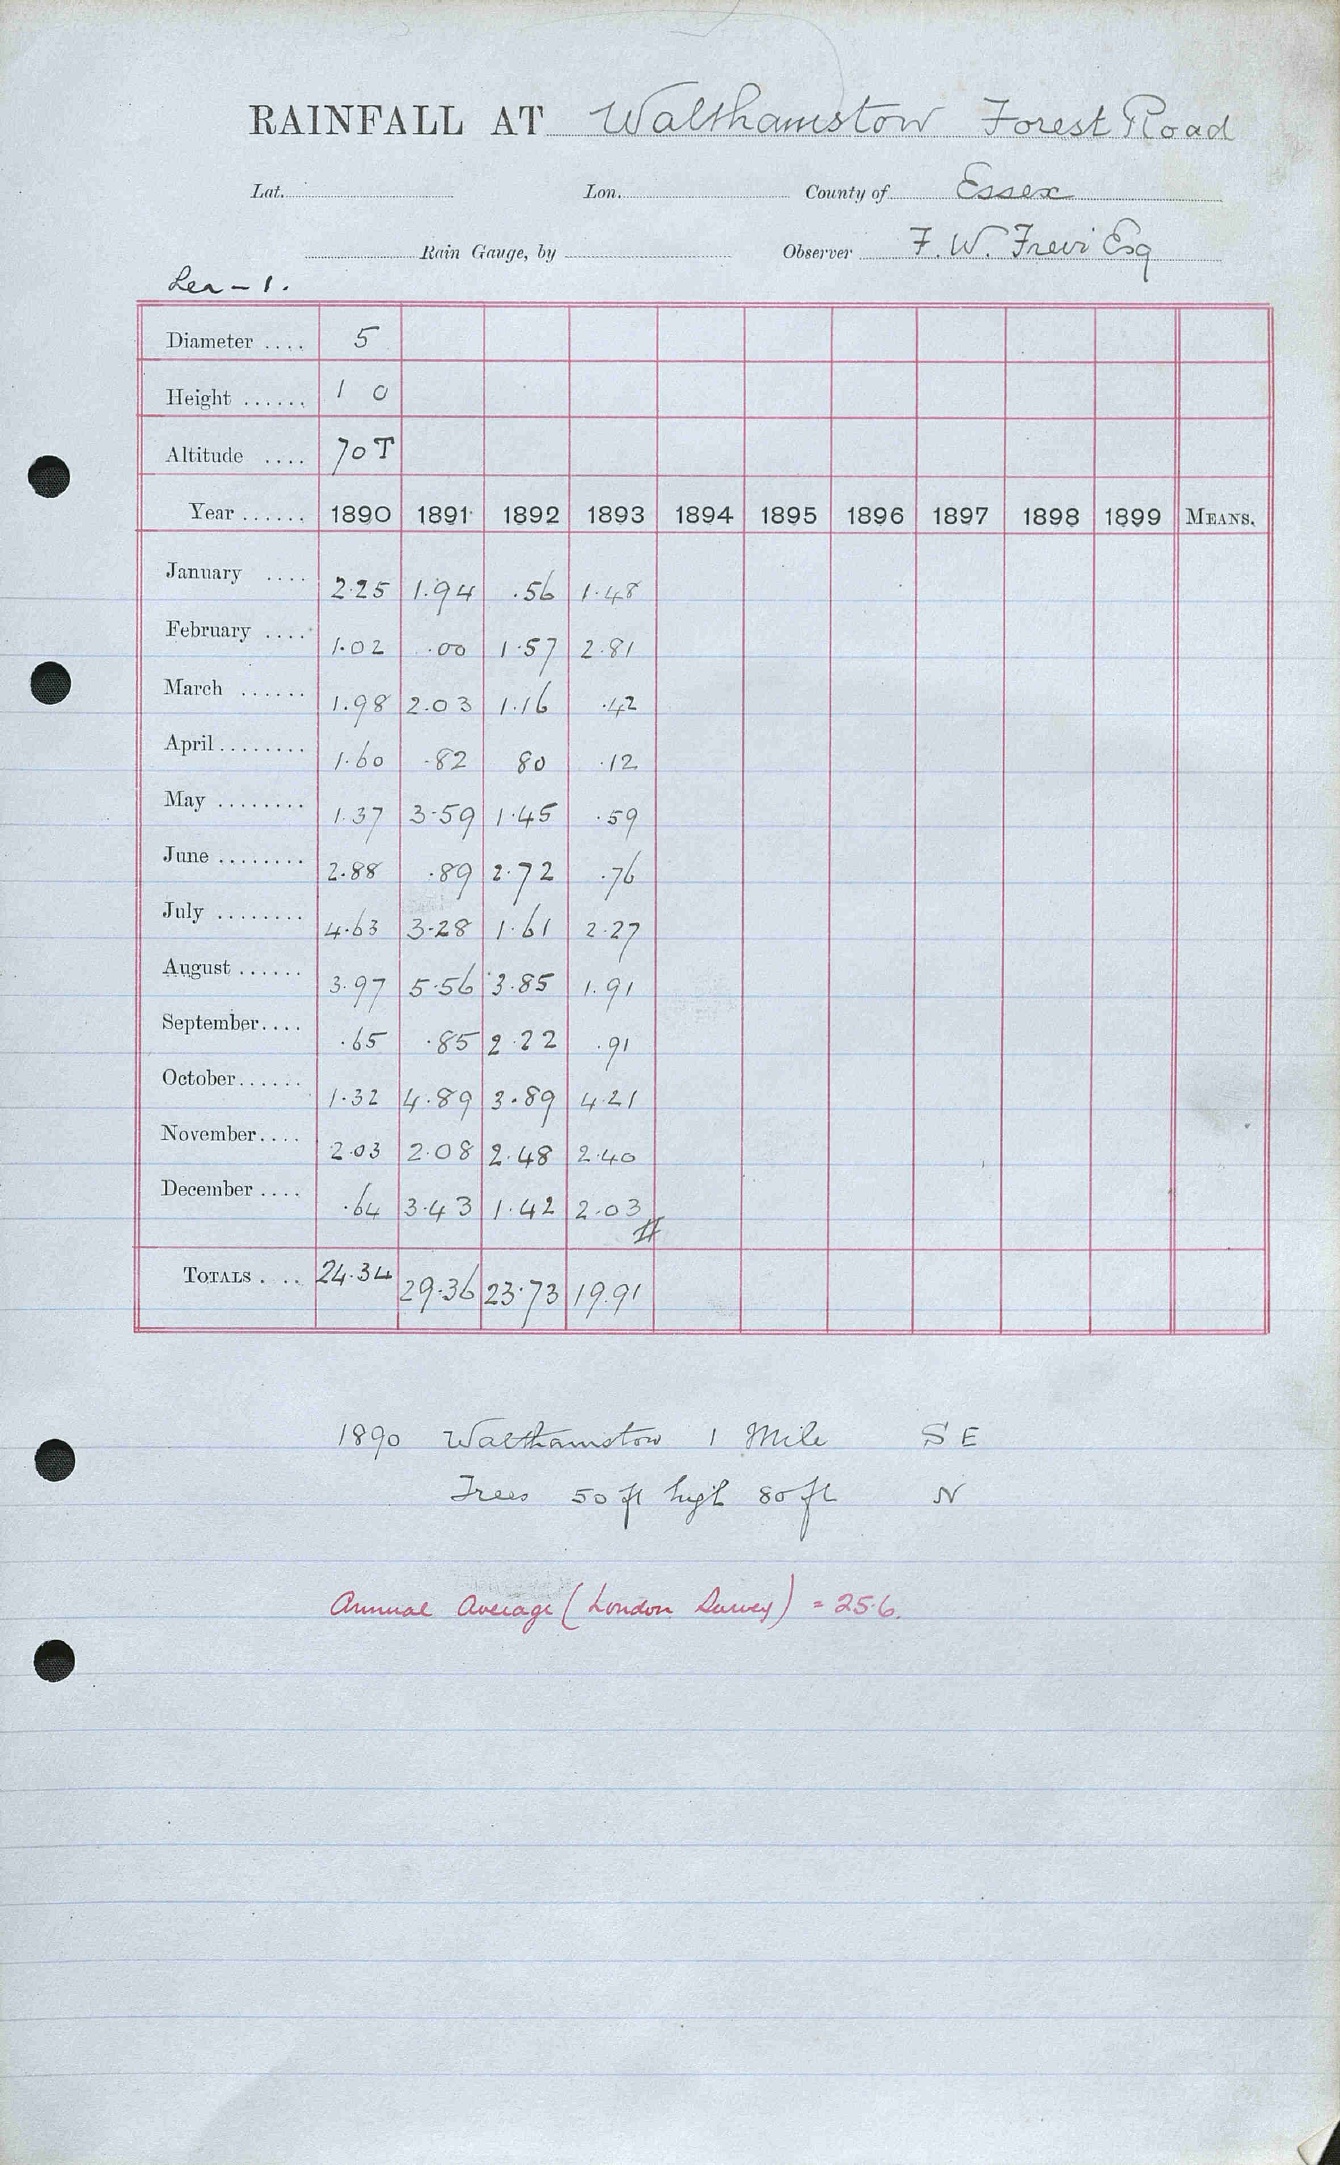 RAINFALL AT Walthamstow Forest Road
Lat. Lon. County of Essex
Rain Gauge, by Observer F. W. Frevi Esq
Lea - 1.
Diameter .... 5
Height ...... 1 0
Altitude .... 70 T
Year ...... 1890 1891 1892 1893 1894 1895 1896 1897 1898 1899 MEANS.
January .... 2.25 1.94 .56 1.48
February .... 1.02 .00 1.57 2.81
March ...... 1.98 2.03 1.16 .42
April ........ 1.60 .82 80 .12
May ........ 1.37 3.59 1.45 .59
June ........ 2.88 .89 2.72 .76
July ........ 4.63 3.28 1.61 2.27
August ...... 3.97 5.56 3.85 1.91
September .... .65 .85 2.22 .91
October ...... 1.32 4.89 3.89 4.21
November .... 2.03 2.08 2.48 2.40
December .... .64 3.43 1.42 2.03
TOTALS . .. 24.34 29.36 23.73 19.91
1890 Walthamstow 1 Mile S E
Trees 50 ft high 80 ft N
Annual Average (London Survey) = 25.6.